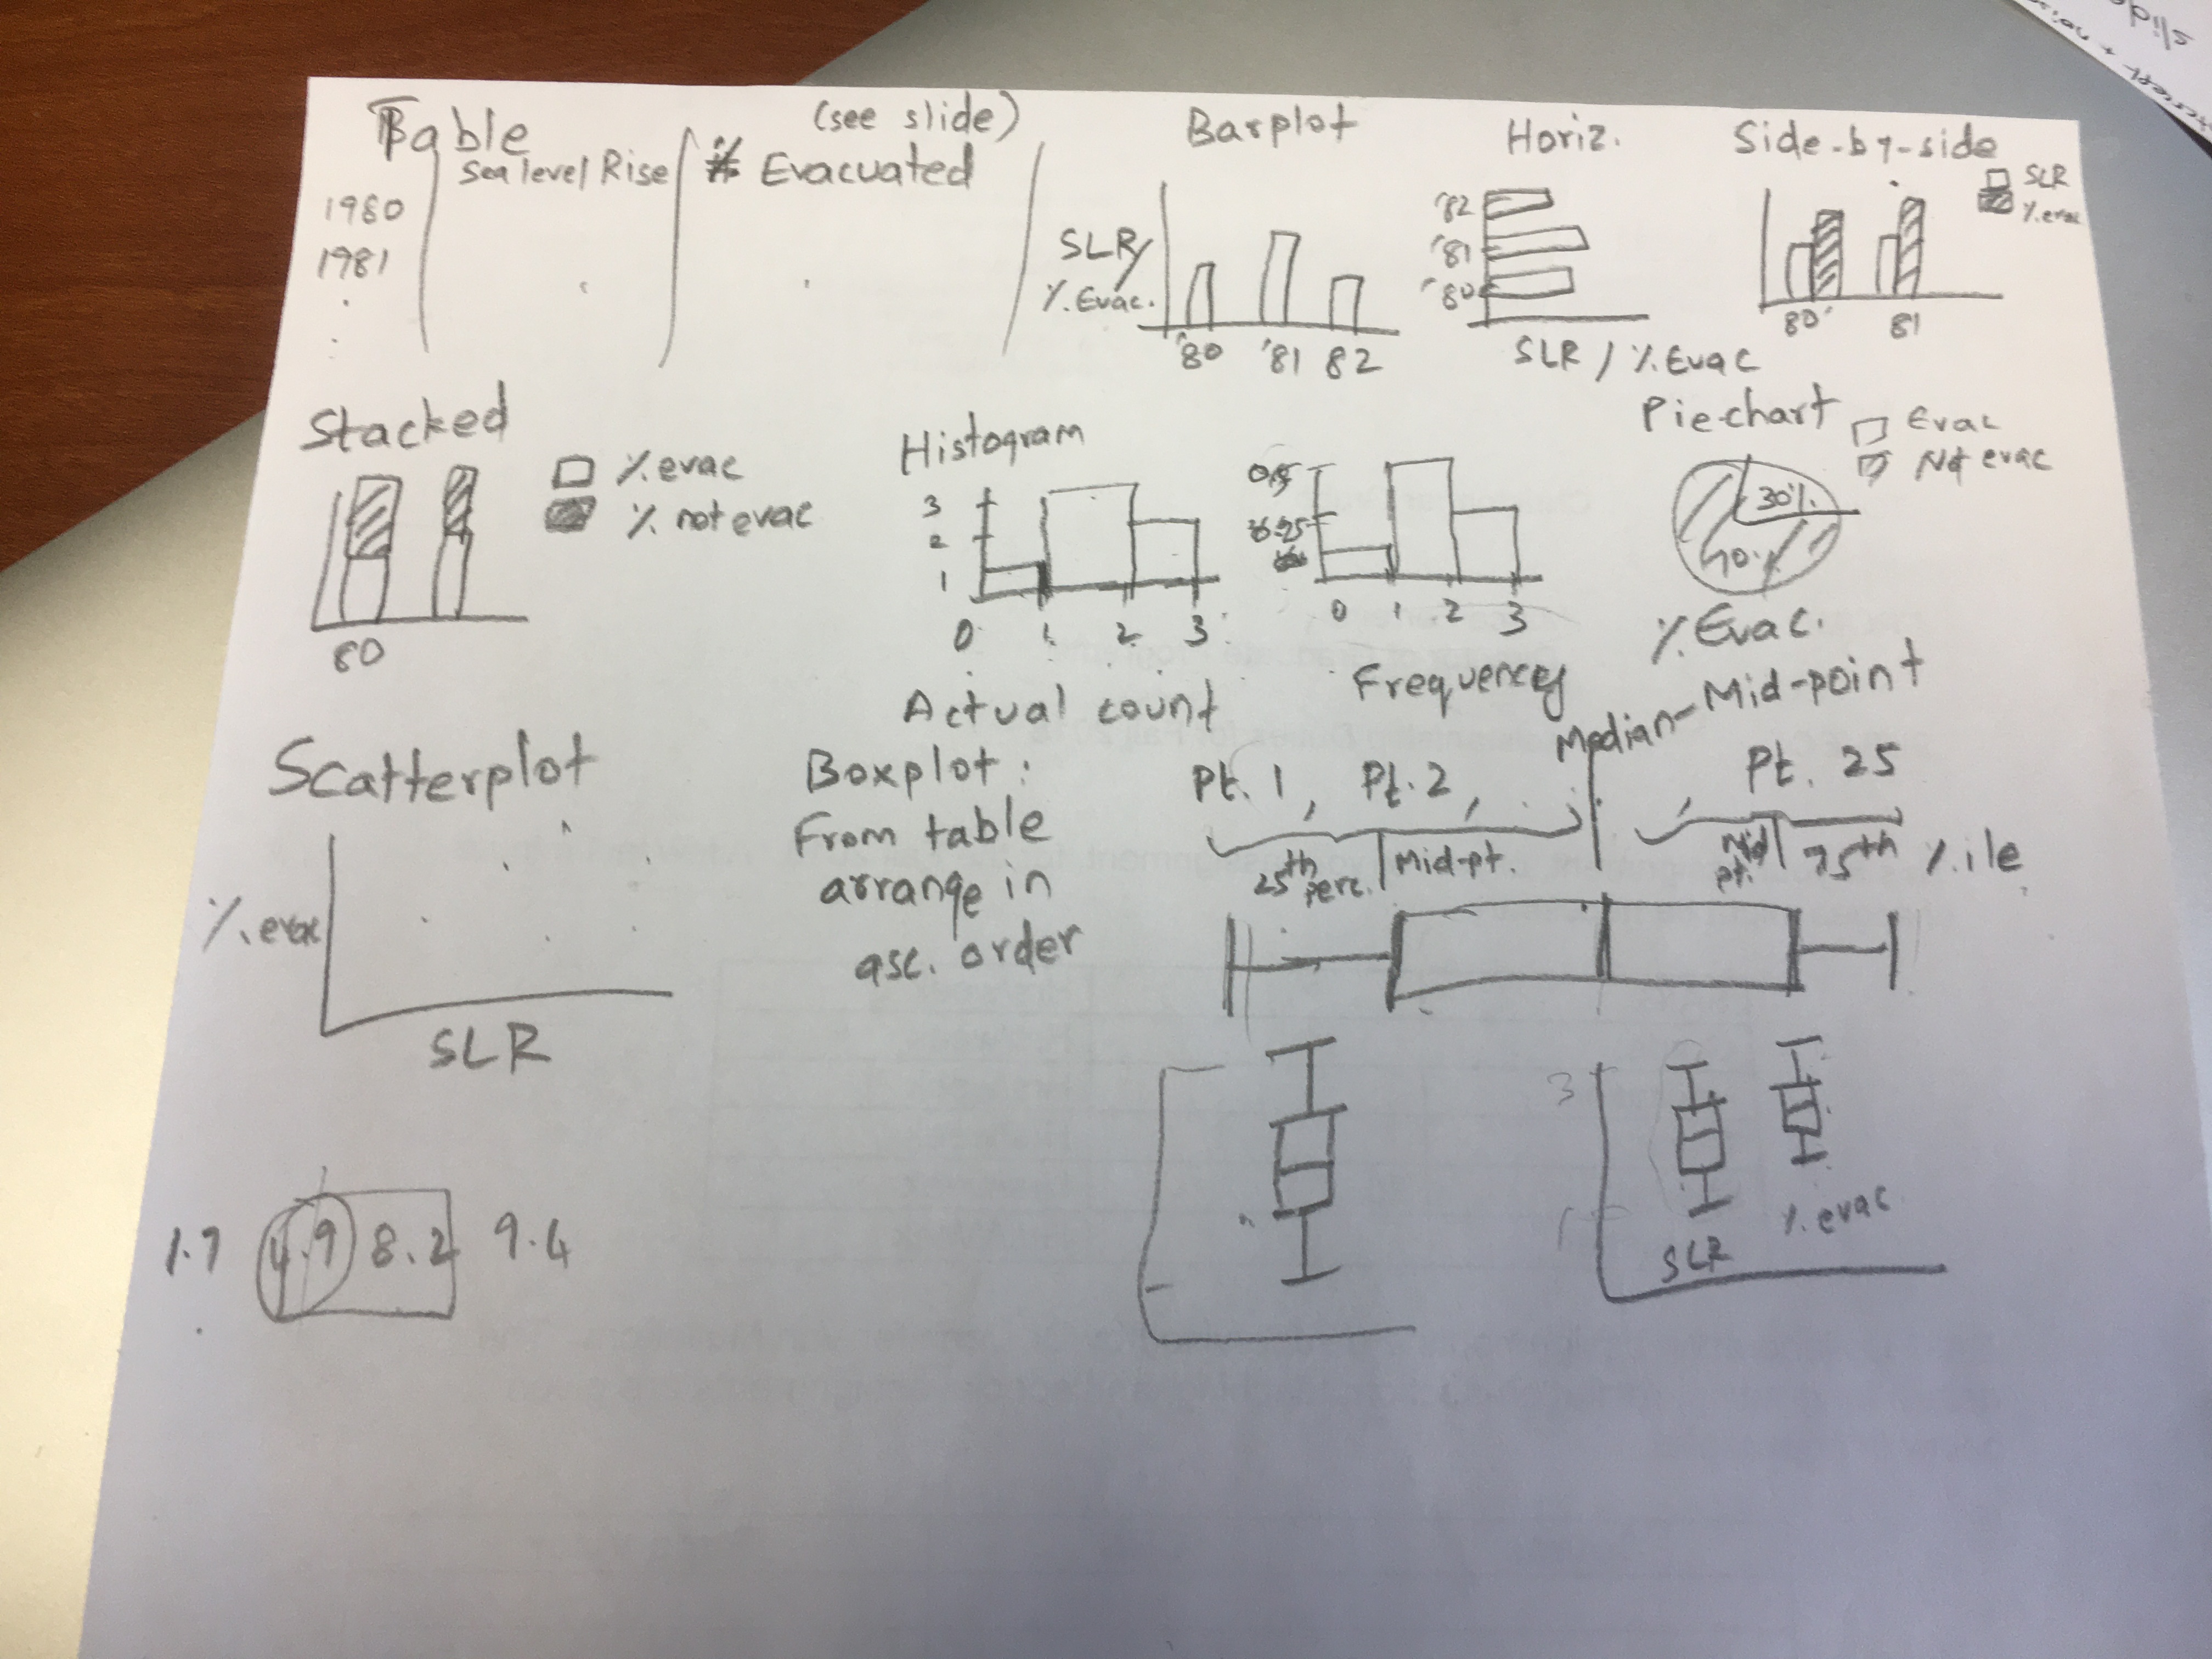 Table (see slide)
Sea level Rise % Evacuated
1980
1981
Barplot
SLR/
%.Evac.
'80 '81 82
Horiz.
'82
'81
'80
SLR / %.Evac
Side-by-side
SLR
%.evac
80' 81
Stacked
%.evac
%. not evac
80
Histogram
3
2
1
0 1 2 3
Actual count
0.5
0.25
0 1 2 3
Frequency
Piechart
Evac
Not evac
30%.
70%
%Evac.
Scatterplot
%.evac
SLR
Boxplot:
From table
arrange in
asc. order
Median - Mid-point
Pt. 1, Pt. 2, , Pt. 25
25th perc. Mid-pt. Mid pt. 75th %.ile
3
1
SLR %.evac
1.7 4.9 8.2 9.4
slide